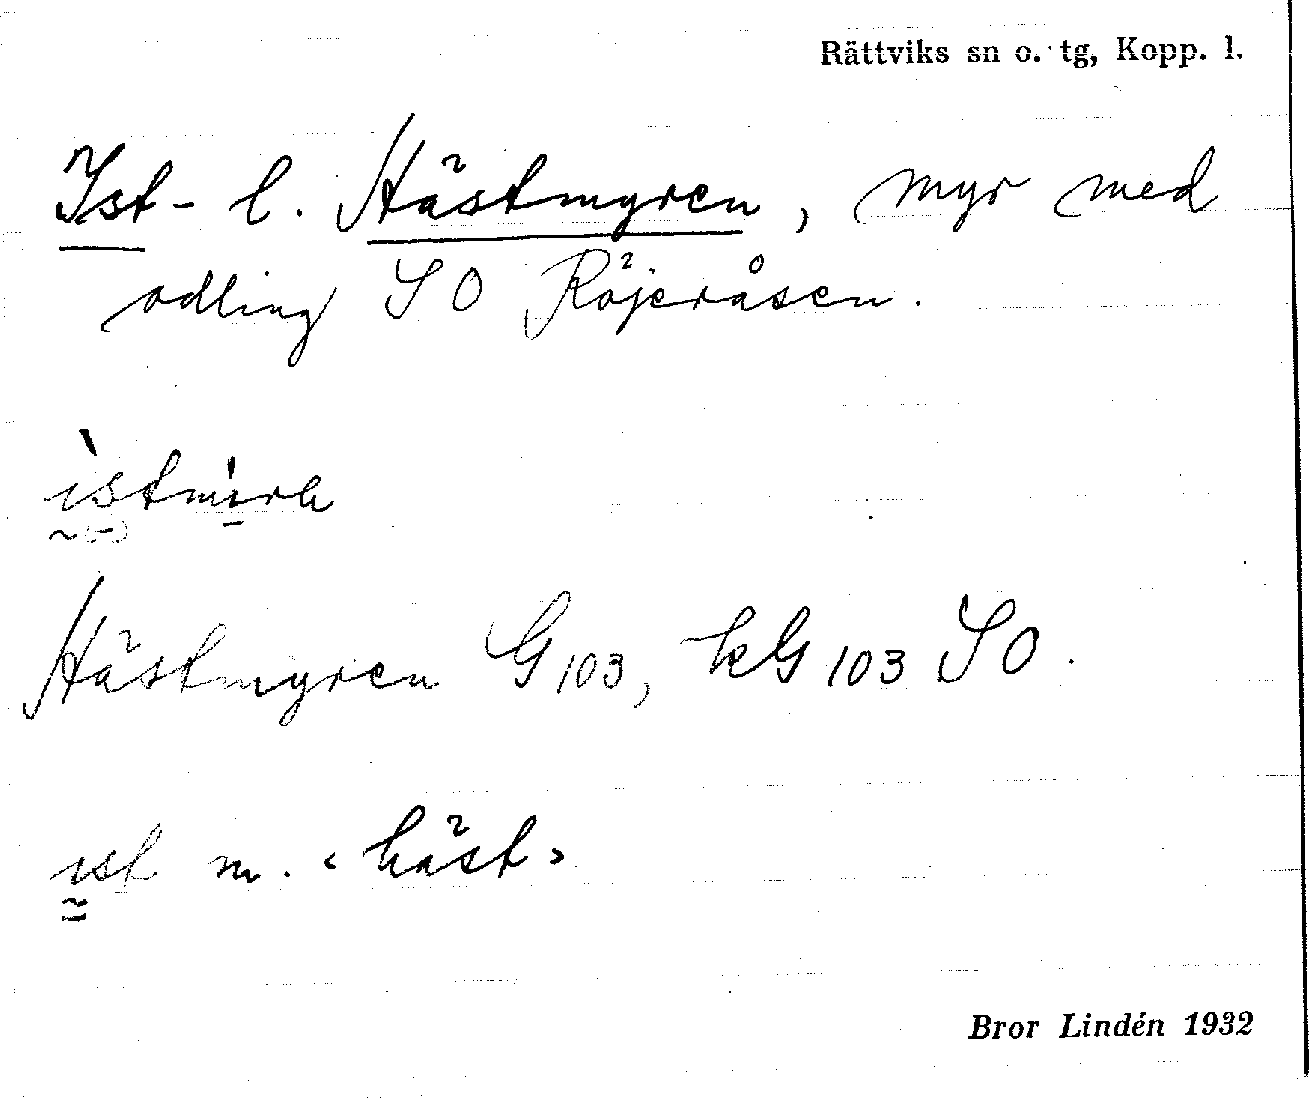 Rättviks sn o. tg, Kopp. l.
Ist- l. Hästmyren, myr med
odling SO Röjeråsen.
ìstmirh
Hästmyren G 103, kG 103 SO.
ist m. ‹häst›
Bror Lindén 1932